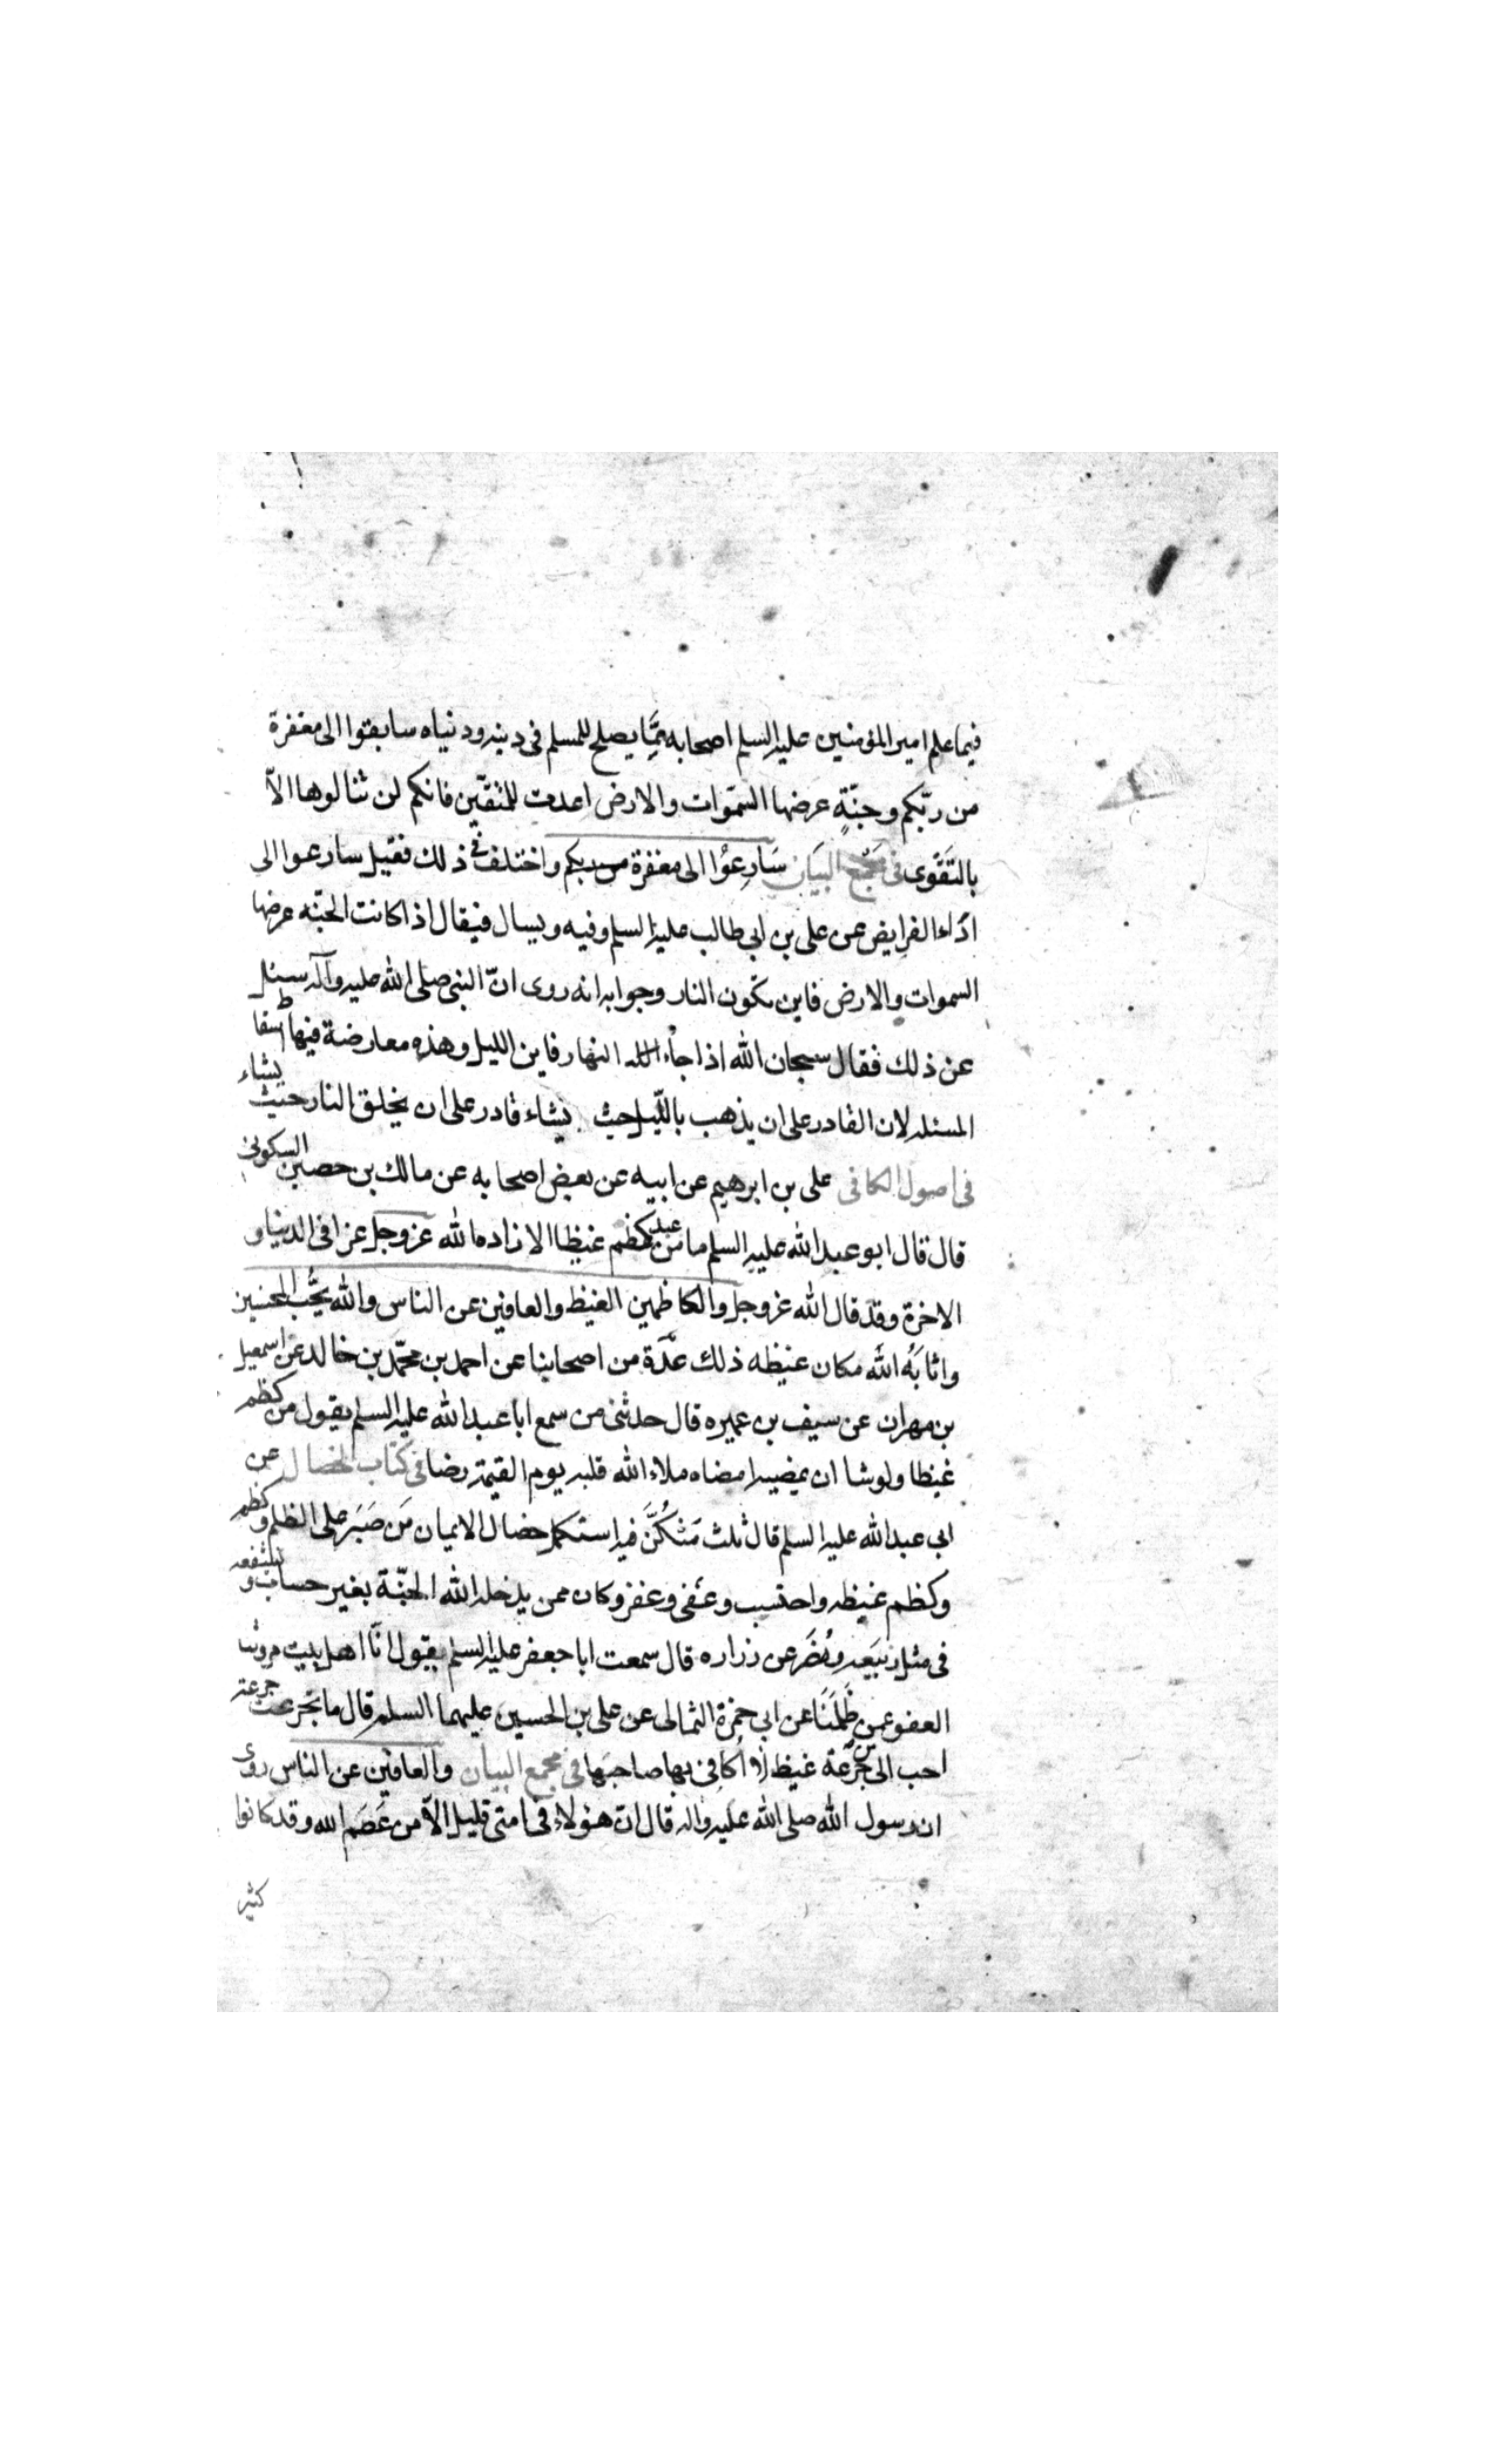 فيما علم امير المؤمنين عليه السلم اصحابه ممّا يصلح للمسلم فى دينه ودنياه سابقوا الى مغفرة
من ربّكم وجنّةٍ عرضها السّموات والارض اعدت للمتّقين فانكم لن تنالوها الاّ
بالتَقَوى فى مَجْمَع البيَان سَارِعُوا الى مغفرة من ربكم واختلف فى ذلك فقيل سارعوا الى
ادَاء الفرايض عن على بن ابى طالب عليه السلم وفيه ويسال فيقال اذا كانت الجنّه عرضها
السموات والارض فاين تكون النار وجوابه انه روى انّ النبى صلى الله عليه وآله سئل
عن ذلك فقال سبحان الله اذا جاء النهار فاين الليل وهذه معارضة فيها اسقاط
المسئله لان القادر على ان يذهب بالليل حيث يشاء قادر على ان يخلق النار حيث يشاء
فى اصول الكافى على بن ابرهيم عن ابيه عن بعض اصحابه عن مالك بن حصين السكونى
قال قال ابو عبد الله عليه السلم ما من عبد كظم غيظا الا زاده الله عز وجل عزا فى الدنيا و
الاخرة وقد قال الله عز وجل والكاظمين الغيظ والعافين عن الناس والله يحُّب المحسنين
واثابَهُ الله مكان غيظه ذلك عدّة من اصحابنا عن احمد بن محمّد بن خالد عن اسمعيل
بن مهران عن سيف بن عميره قال حدثنى من سمع ابا عبد الله عليه السلم يقول من كظم
غيظا ولو شا ان يمضيه امضاه ملاء الله قلبه يوم القيمة رضا فى كتاب الخصال عن
ابى عبد الله عليه السلم قال ثلث مَن كُنَّ فيه استكمل خصال الايمان مَن صَبَرَ على الظلم وكظم
وكظم غيظه واحتسب وعفى وغفر وكان ممن يدخله الله الجنّة بغير حساب و يشفعه
فى مثل ربيَعه ومُضَر عن زراره قال سمعت ابا جعفر عليه السلم يقول انّا اهل بيت مروتنا
العفو عمن ظَلَمَنَا عن ابى حمزة الثمالى عن على بن الحسين عليهما السلم قال ما تجرعت جرعة
احب الى من جرعة غيظ لا اكافى بها صاحبها فى مجمع البيان والعافين عن الناس روى
ان رسول الله صلى الله عليه واله قال ان هؤلاء فى امتى قليل الاّ من عَصَمَ الله وقد كانوا
كثير